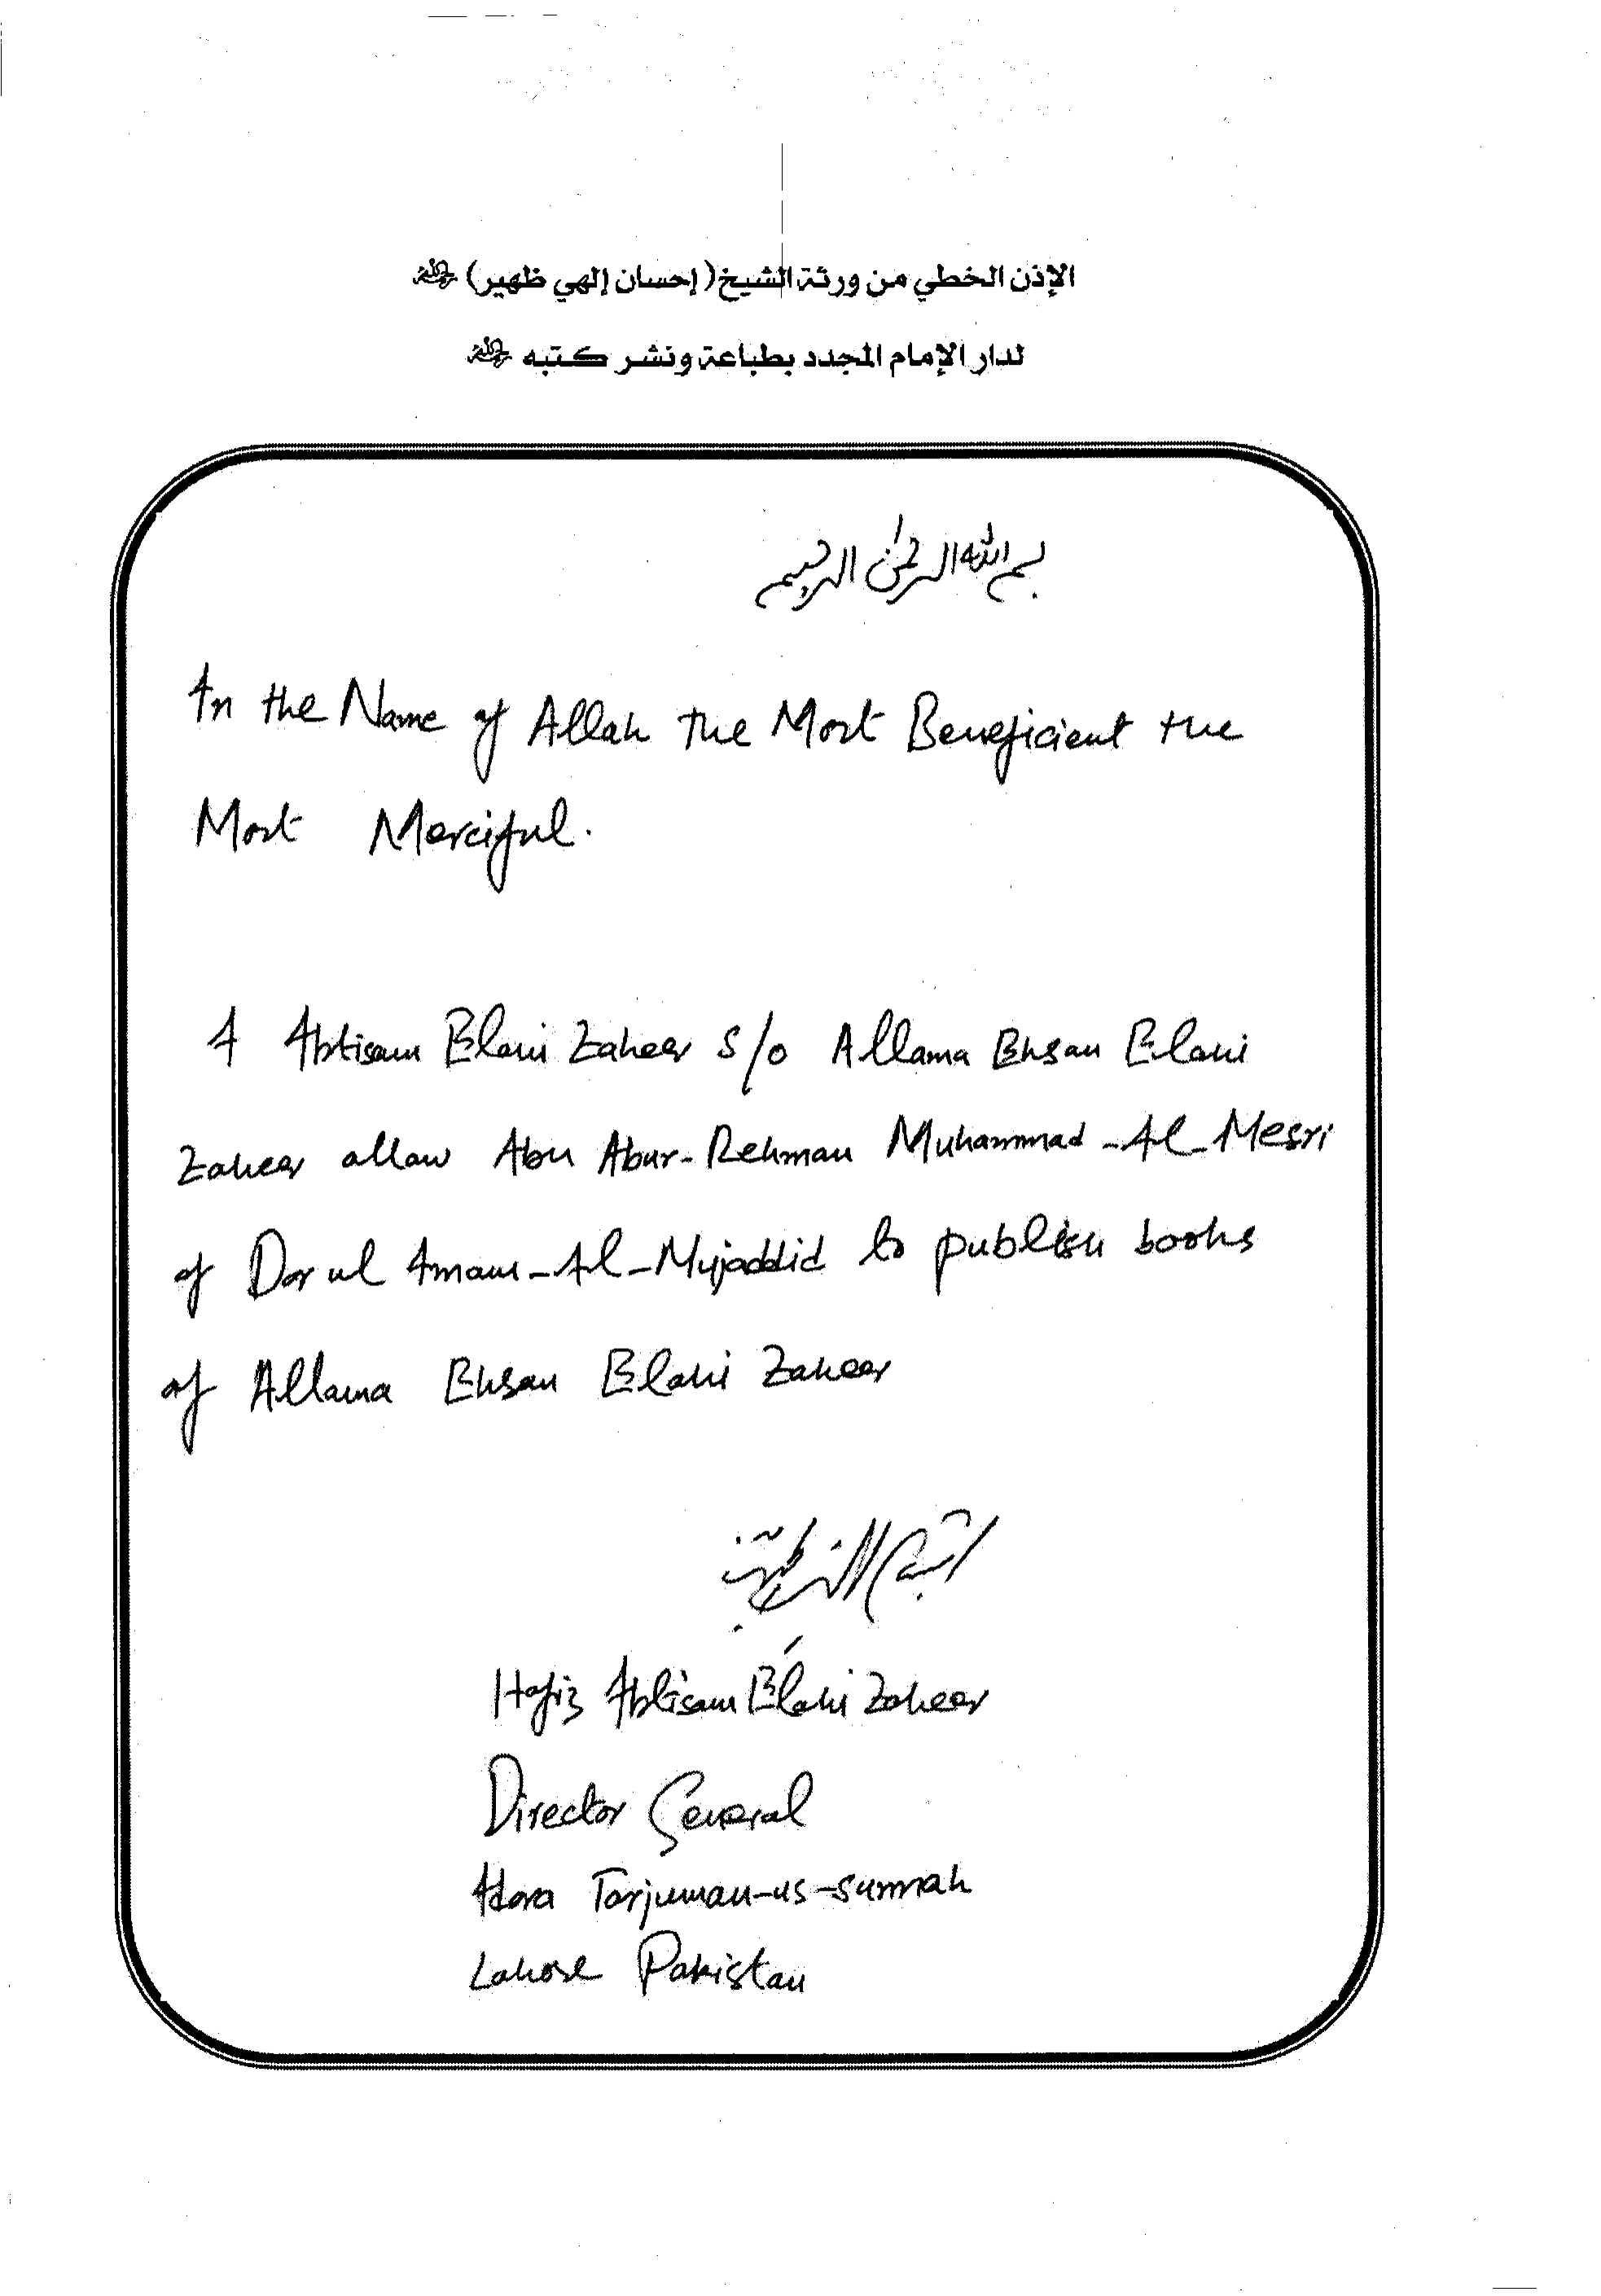 الإذن الخطي من ورثة الشيخ (إحسان إلهي ظهير) رحمه الله
لدار الإمام المجدد بطباعة ونشر كتبه رحمه الله
بسم الله الرحمن الرحيم
In the Name of Allah The Most Beneficient the
Most Merciful.
I Ibtisam Elahi Zaheer S/o Allama Ehsan Elahi
Zaheer allow Abu Abur-Rehman Muhammad-Al-Mesri
of Dar ul Imam-Al-Mujaddid to publish books
of Allama Ehsan Elahi Zaheer
Hafiz Ibtisam Elahi Zaheer
Director General
Idara Tarjuman-us-sunnah
Lahore Pakistan